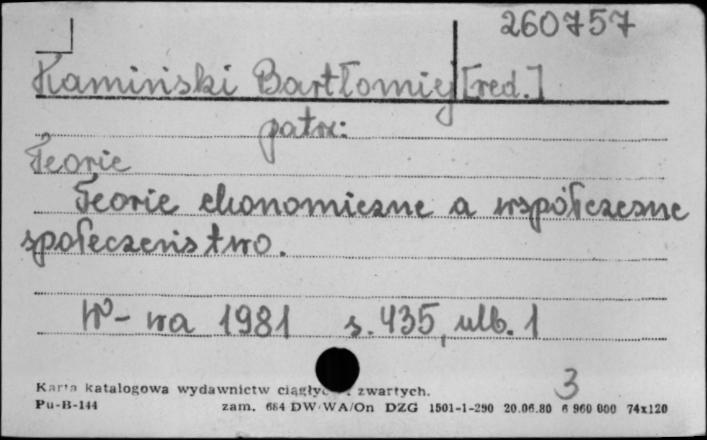 260757
Kamiński Bartłomiej [red.]
patrz:
Teorie
Teorie ekonomiczne a współczesne
społeczeństwo.
W-wa 1981 s. 435, ulb. 1
3
Karta katalogowa wydawnictw zwartych.
Pu-B-144 zam. 684 DW WA/On DZG 1501-1-290 20.06.80 6 960 000 74x120